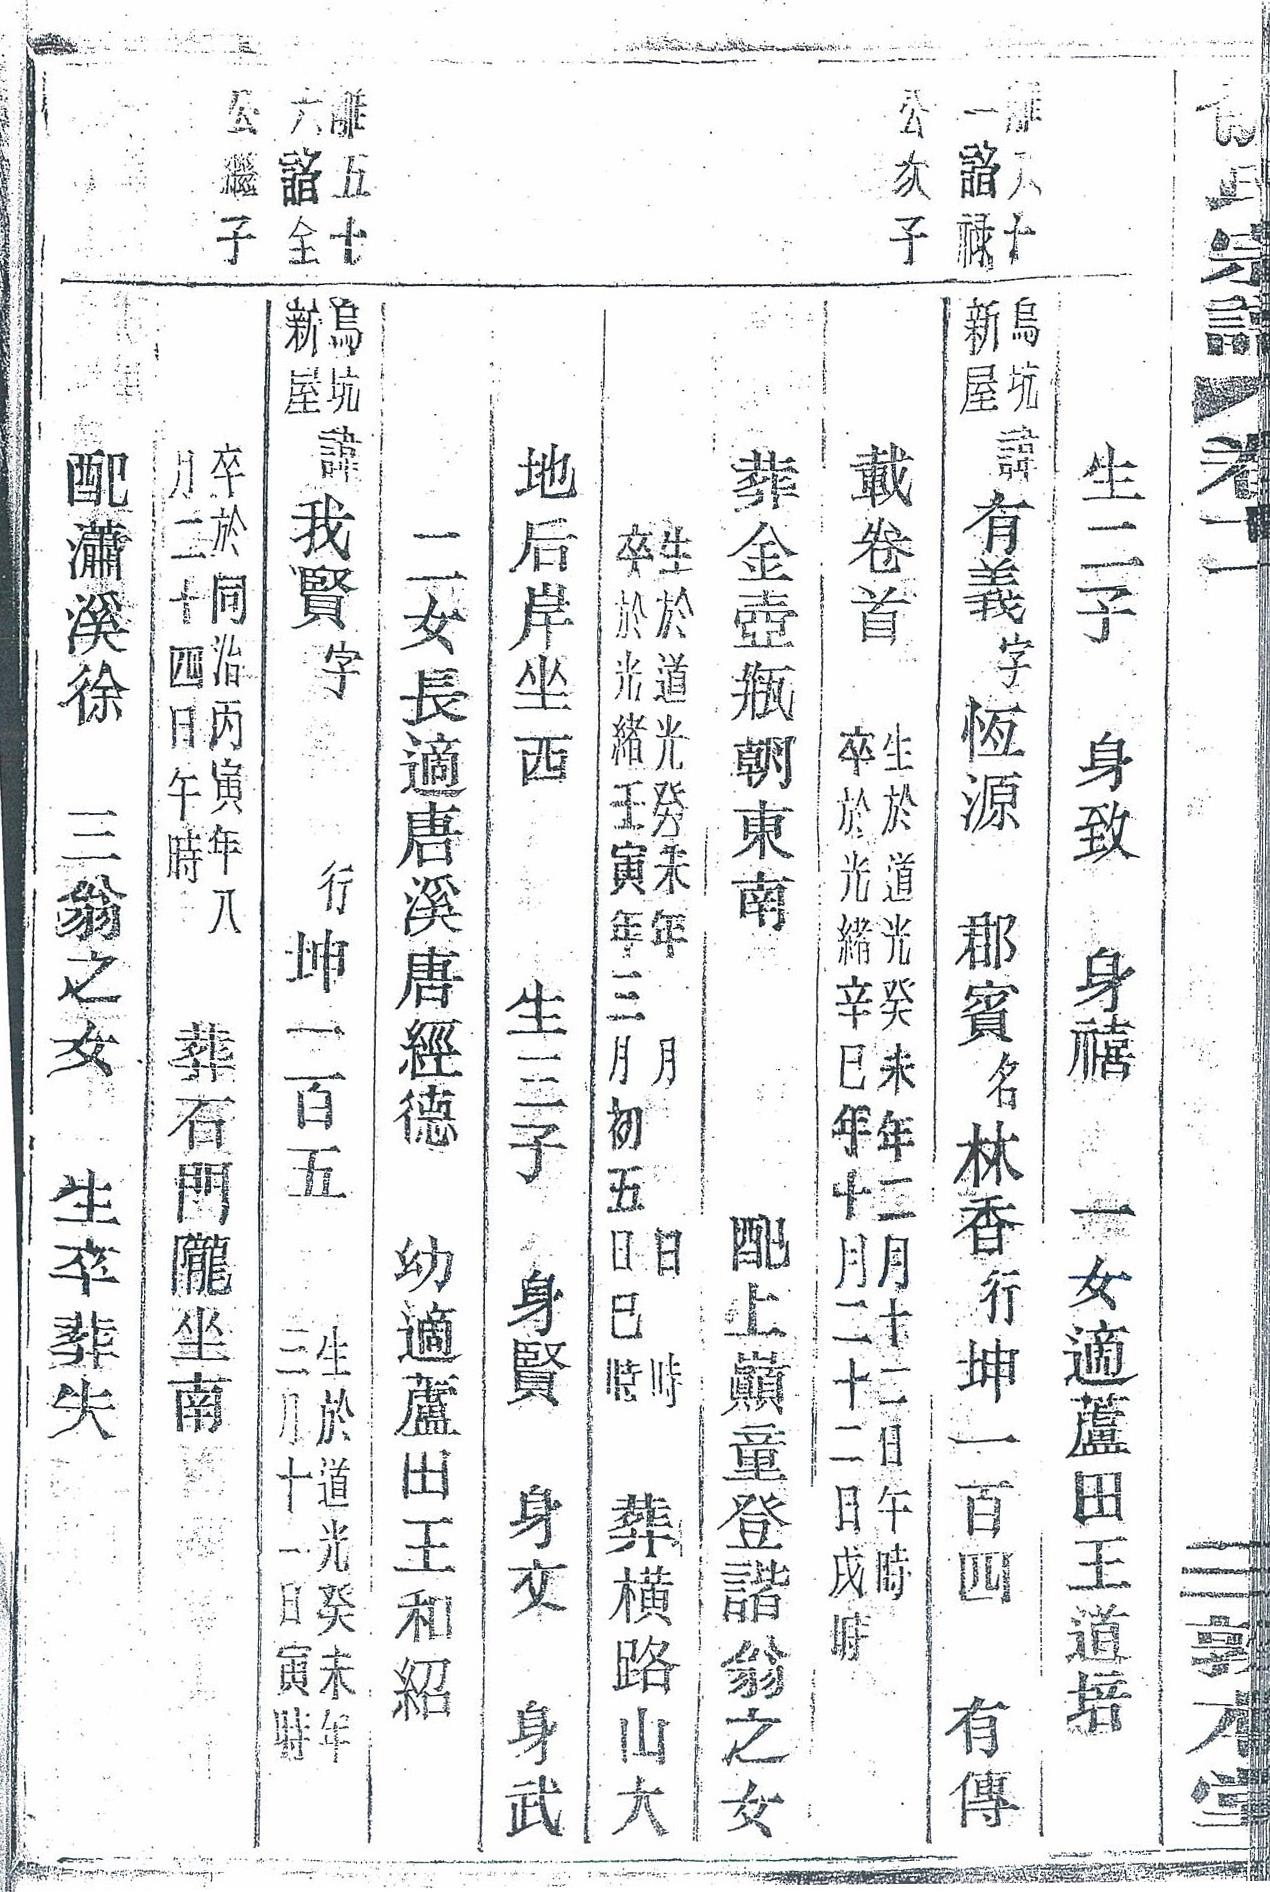 氏宗譜 卷二 敦本堂
生二子 身致 身禧 一女適蘆田王道培
離八十
一諮祿
公次子
烏坑
新屋
諱有義字恆源 郡賓名林香行坤一百四 有傳
載卷首
生於道光癸未年二月十二日午時
卒於光緒辛巳年十月二十二日戌時
葬金壺瓶朝東南 配上巔童登諧翁之女
生於道光癸未年 月 日 時
卒於光緒壬寅年三月初五日巳時
葬橫路山大
地后岸坐西 生三子 身賢 身文 身武
二女長適唐溪唐經德 幼適蘆田王和紹
離五十
六諮全
公繼子
烏坑
新屋
諱我賢字 行坤一百五
生於道光癸未年
三月十一日寅時
卒於同治丙寅年八
月二十四日午時
葬石門隴坐南
配瀟溪徐 三翁之女 生卒葬失